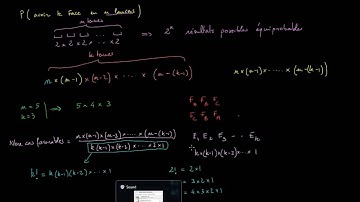 P ( avoir k face en n lancers )
n lancers
2 × 2 × 2 × ··· × 2 ⟹ 2ⁿ résultats possibles équiprobables
k termes
n × (n-1) × (n-2) × ··· × (n-(k-1))
n × (n-1) × ··· × (n-(k-1))
n = 5
k = 3
5 × 4 × 3
F_A F_B F_C
F_C F_B F_A
Nbre cas favorables = n×(n-1)×(n-2)×···×(n-(k-1))
k(k-1)×(k-2)×···×2×1
F₁ F₂ F₃ ··· F_k
k×(k-1)×(k-2)×···×1
k! = k(k-1)(k-2)×···×1
2! = 2×1
= 3×2×1
= 4×3×2×1